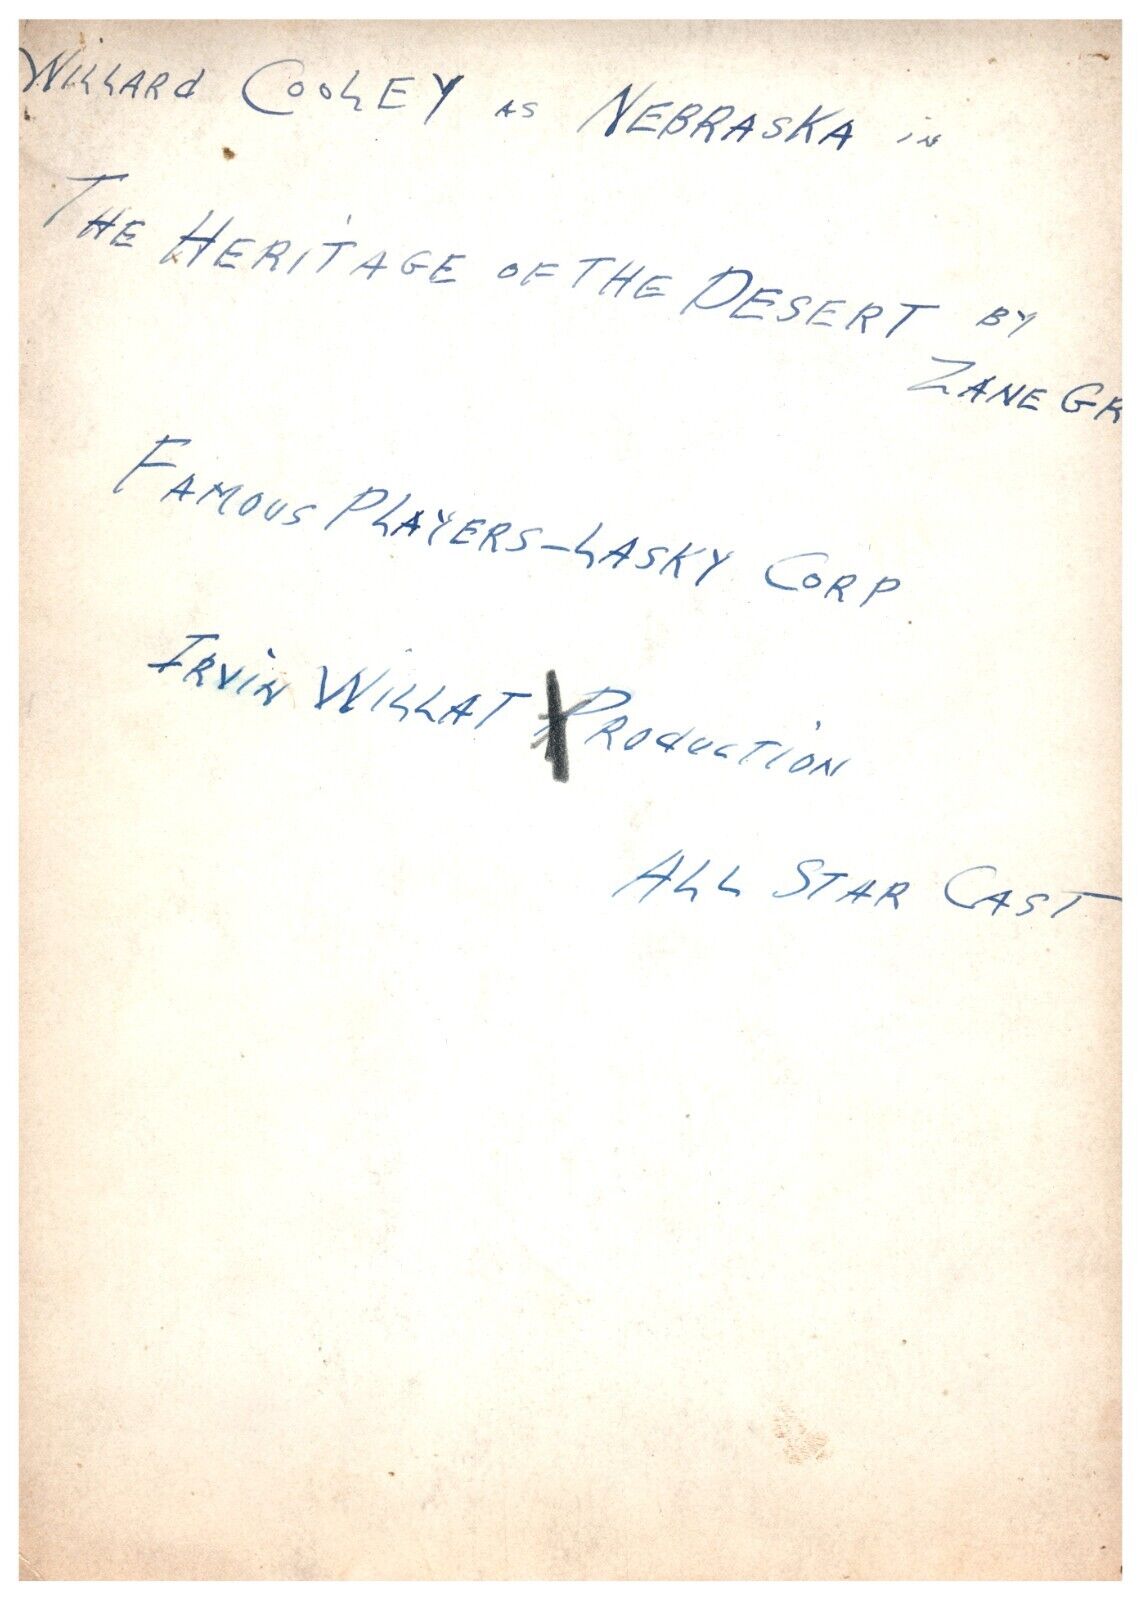 Willard Cooley as Nebraska in
The Heritage of the Desert by
Zane Gr
Famous Players-Lasky Corp
Irvin Willat Production
All Star Cast